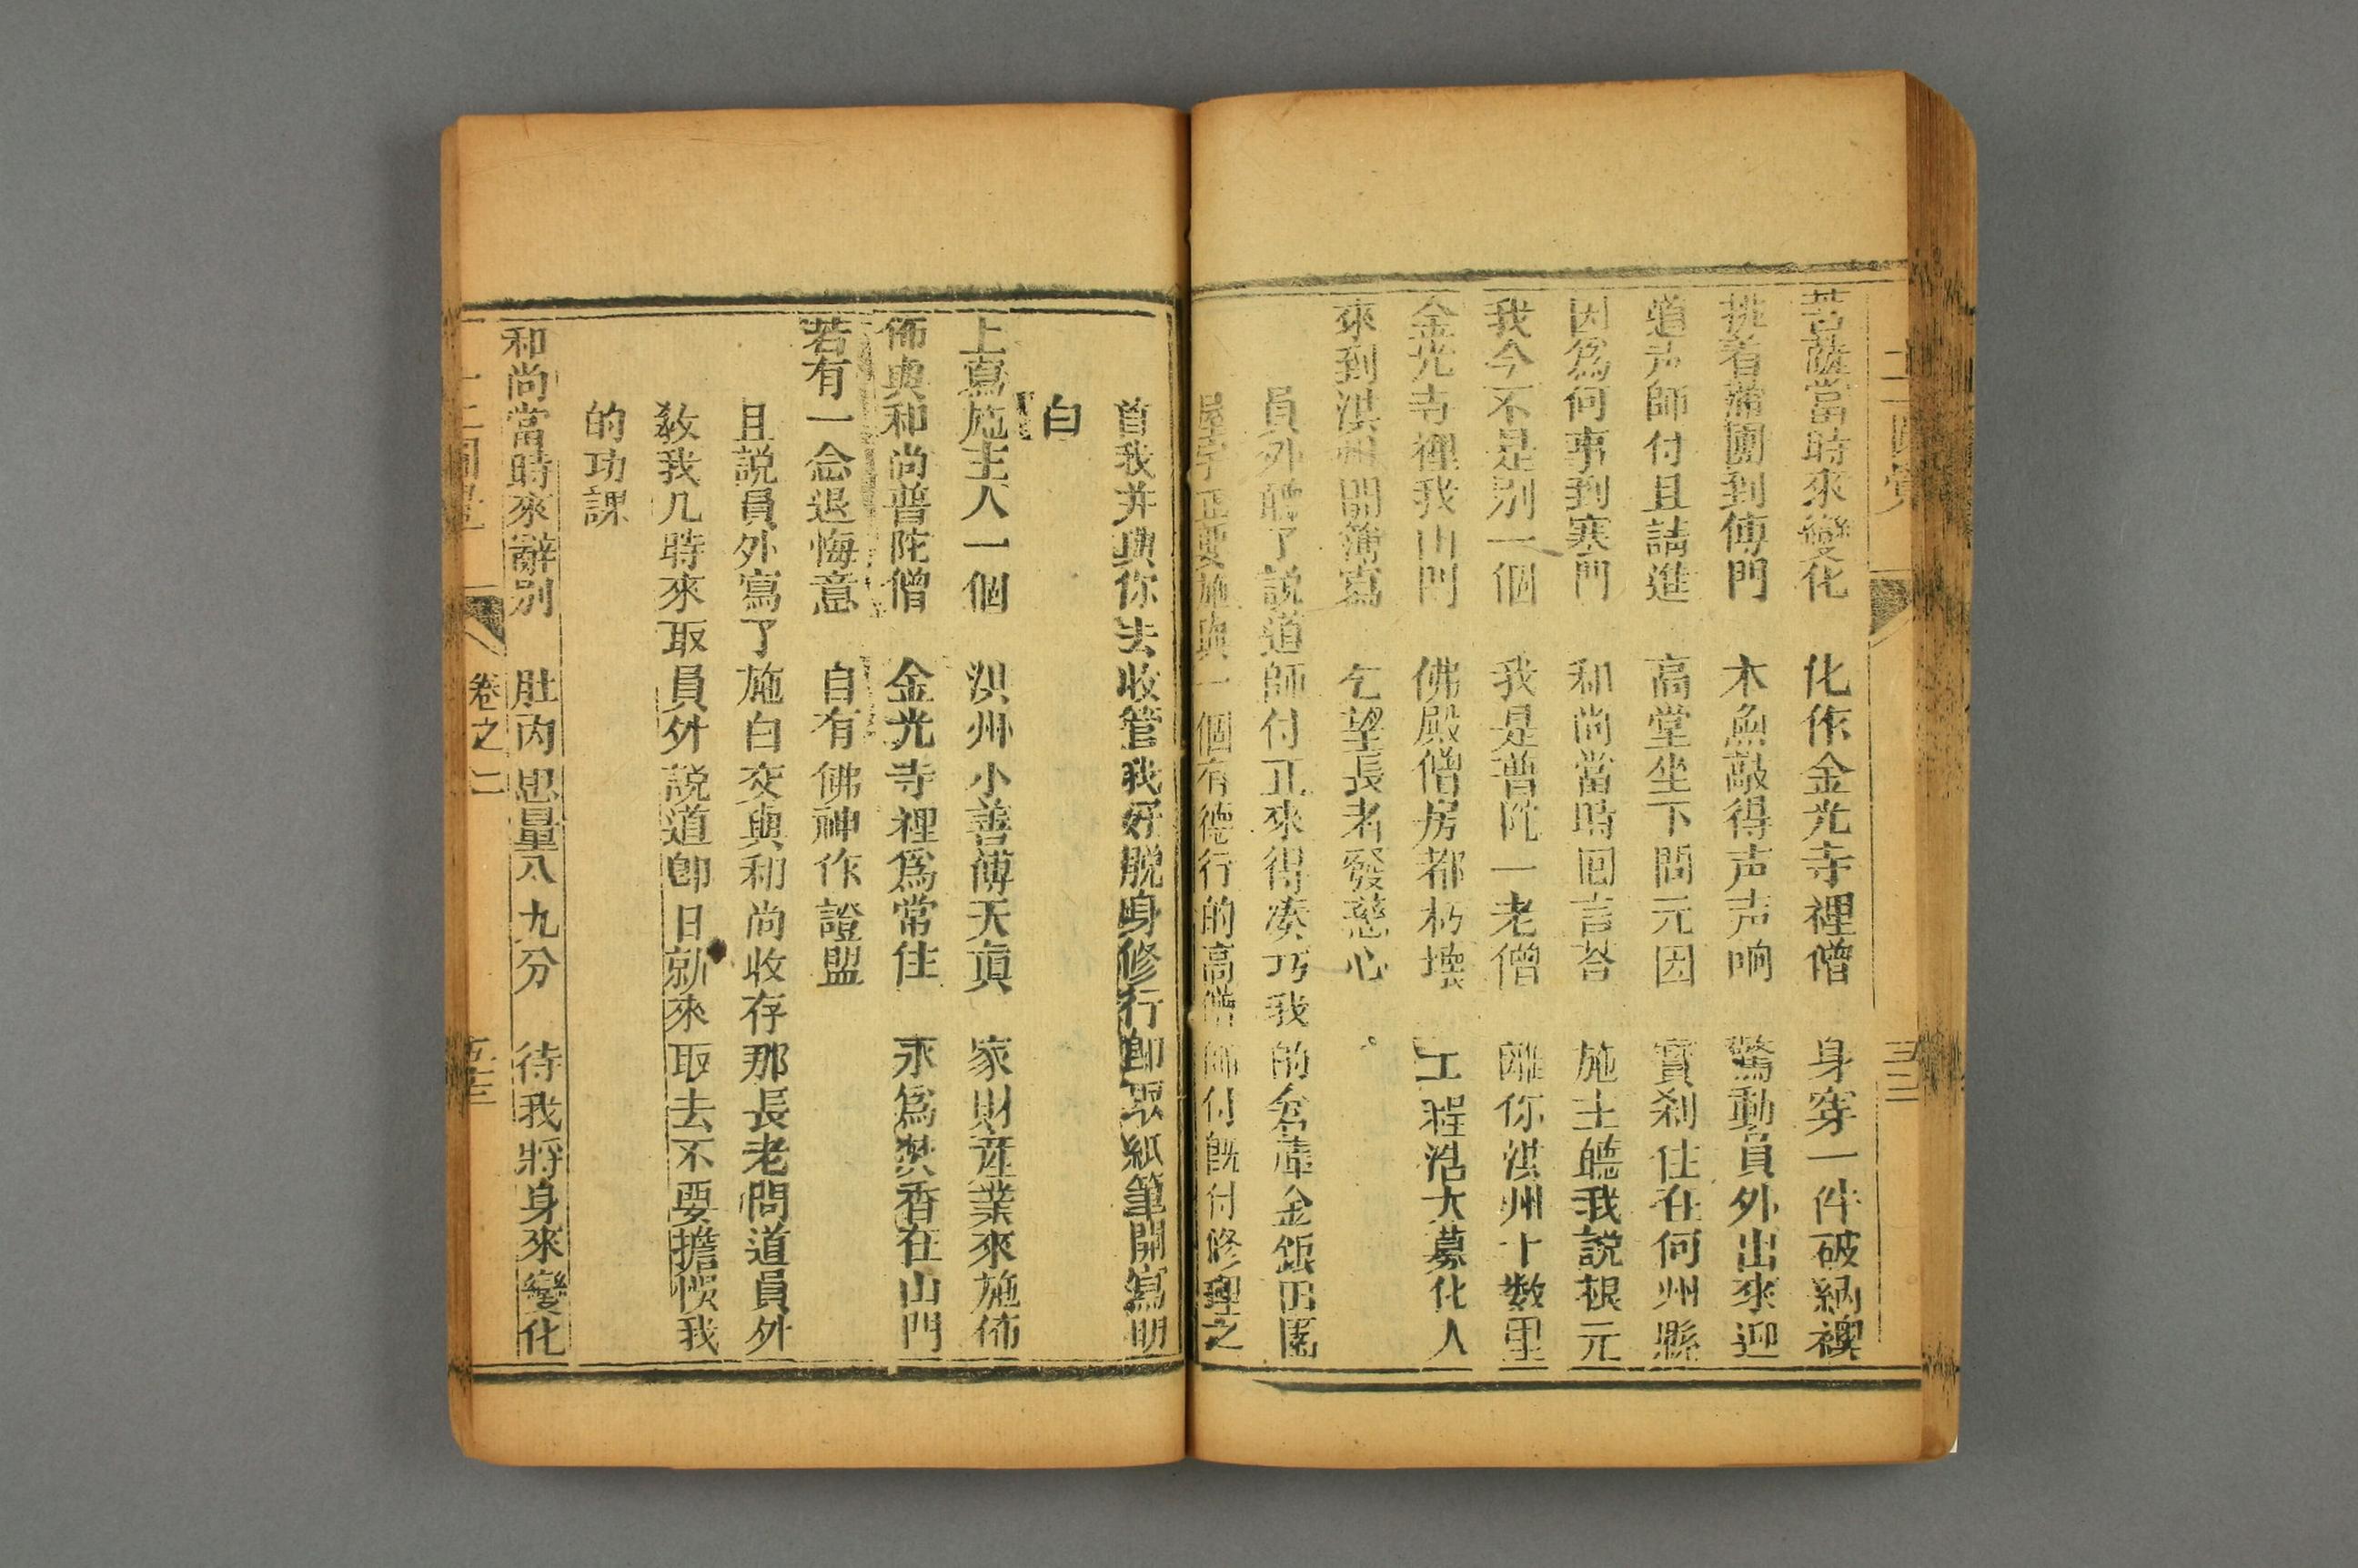 菩薩當時來變化 化作金光寺裡僧 身穿一件破納襖
挑着蒲團到傅門 木魚敲得声声响 驚動員外出來迎
道声師付且請進 高堂坐下問元因 寳刹住在何州縣
因爲何事到寒門 和尚當時回言荅 施主聽我説根元
我今不是别一個 我是普陀一老僧 離你洪州十数里
金光寺裡我山門 佛殿僧房都朽壊 工程浩大募化人
來到洪州開簿寫 乞望長者發慈心
員外聽了説道師付正來得凑巧我的倉庫金銀田園
屋宇正要施與一個有德行的高僧師付旣付修理之
首我并與你去收管我好脱身修行卽取紙筆開寫明
白
上寫施主人一個 洪州小善傅天貢 家財産業來施佈
佈與和尚普陀僧 金光寺裡爲常住 永爲焚香在山門
若有一念退悔意 自有佛神作證盟
且説員外寫了施白交與和尚收存那長老問道員外
教我几時來取員外説道卽日就來取去不要擔悞我
的功課
和尚當時來辭别 肚内思量八九分 待我將身來變化
卷之二